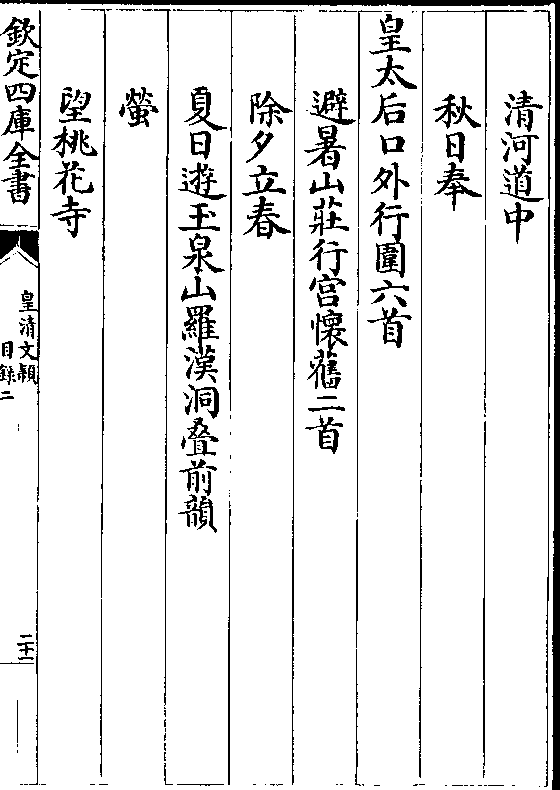 清河道中
秋日奉
皇太后口外行圍六首
避暑山莊行宫懷舊二首
除夕立春
夏日遊玉泉山羅漢洞叠前韻
螢
望桃花寺
欽定四庫全書
皇清文穎
目録二
二十一